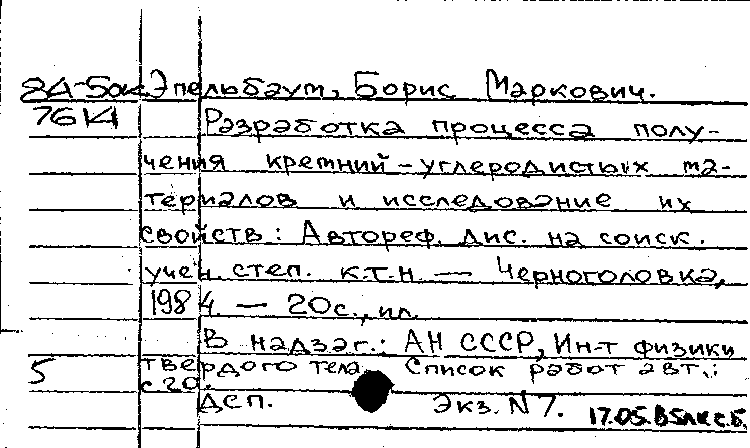 84-50к Эпельбаум, Борис Маркович.
7614 Разработка процесса полу-
чения кремний-углеродистых ма-
териалов и исследование их
свойств: Автореф. дис. на соиск.
учен. степ. к.т.н. — Черноголовка,
1984. — 20с., ил.
В надзаг.: АН СССР, Ин-т физики
5 твердого тела. Список работ авт.:
с 20.
ДСП. Экз. N 7. 17.05.85